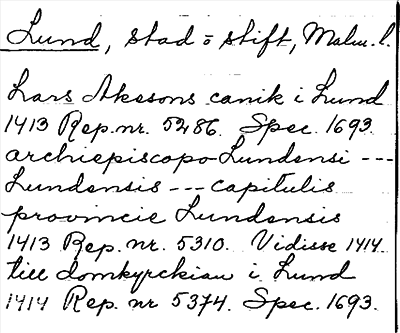 Lund, stad o stift, Malm. l.
Lars Akesons canik i Lund
1413 Rep. nr. 5286. Spec. 1693.
archiepiscopo Lundensi ---
Lundensis --- capitulis
provincie Lundensis
1413 Rep. nr. 5310. Vidisse 1414.
till domkyrckian i Lund
1414 Rep. nr 5374. Spec. 1693.